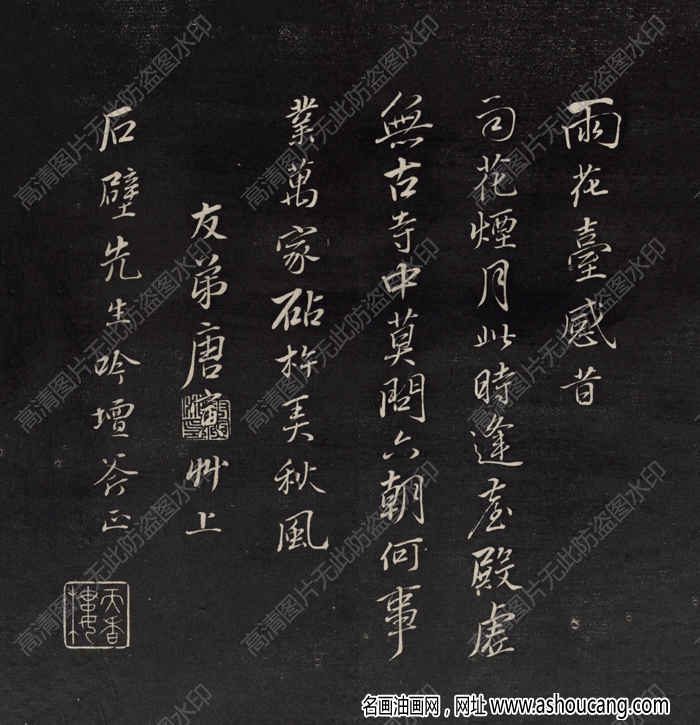 雨花臺感昔
花煙月此時逢臺殿虛
無古寺中莫問六朝何事
業萬家砧杵美秋風
友弟唐寅艸上
石壁先生吟壇斧正
天香樓
高清图片无此防盗图水印
名画油画网，网址 www.ashoucang.com